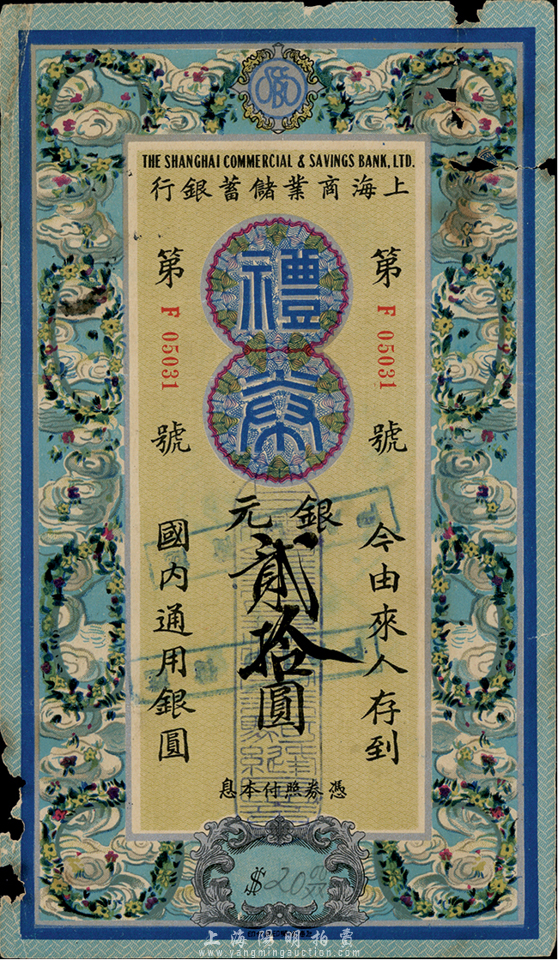 THE SHANGHAI COMMERCIAL & SAVINGS BANK, LTD.
行銀蓄儲業商海上
禮
券
第 F 05031 號
第 F 05031 號
今由來人存到
元銀
貳拾圓
國內通用銀圓
息本付照券憑
$20 00/xx
上海陽明拍賣
www.yangmingauction.com